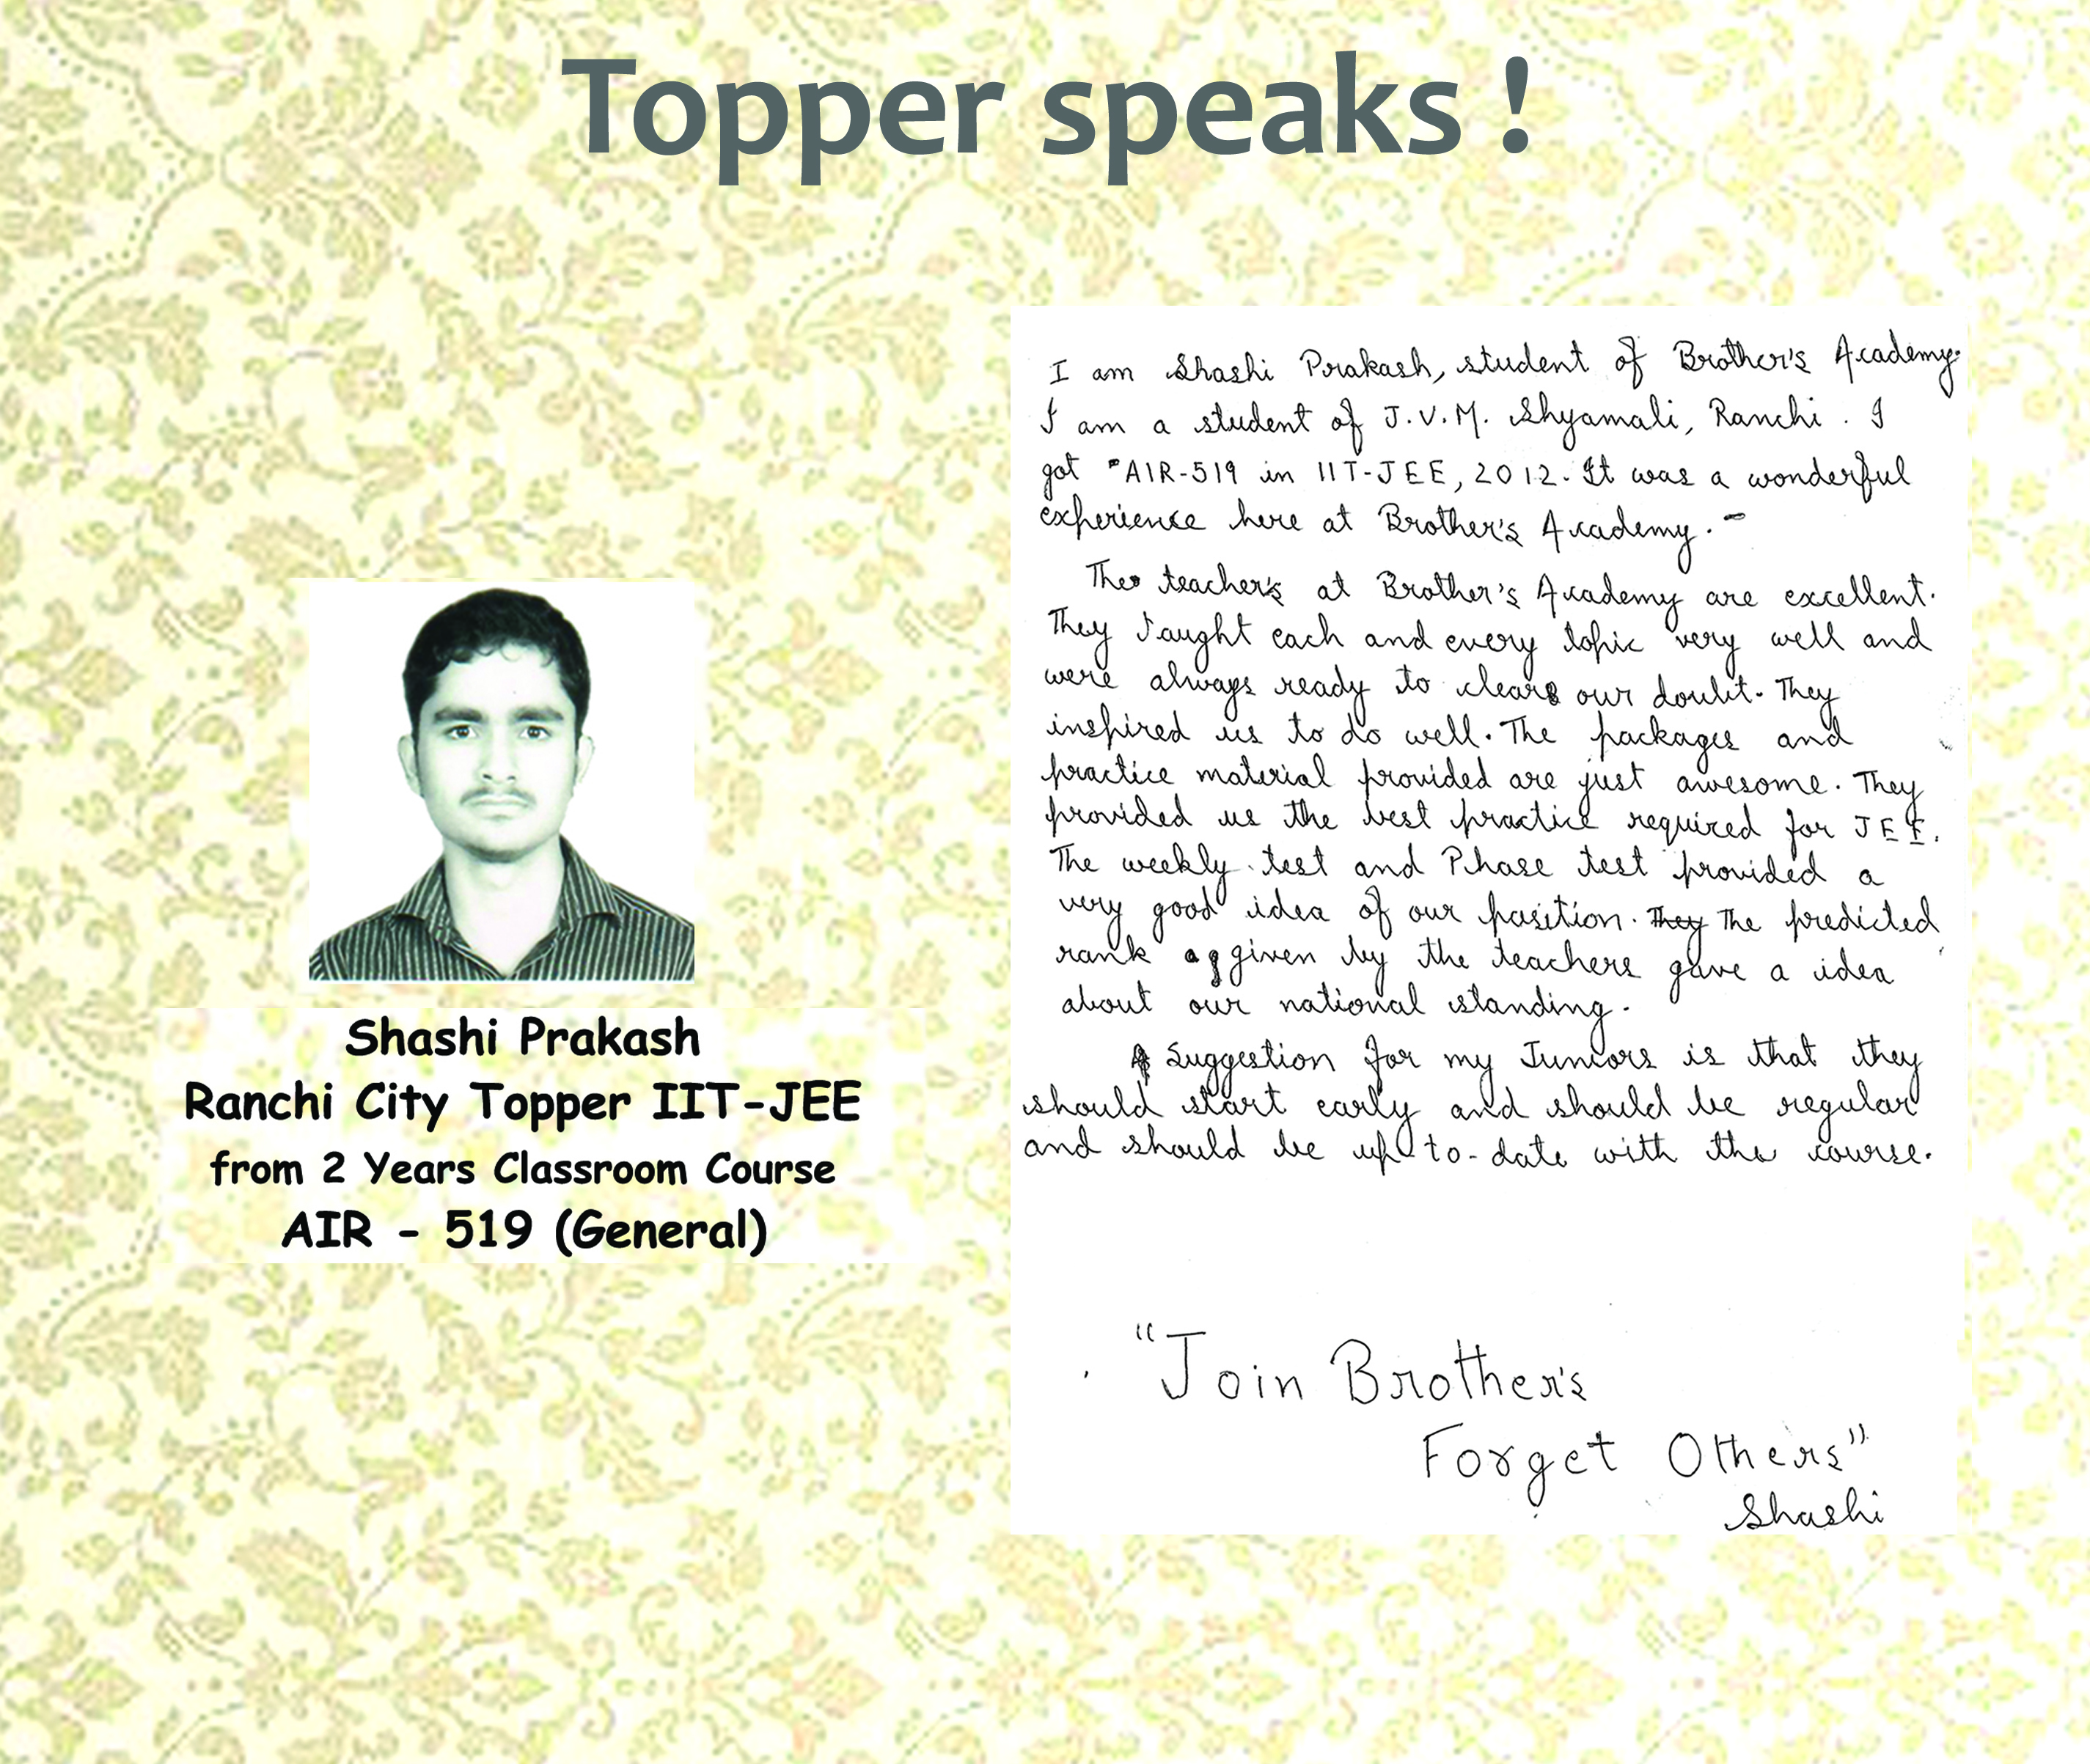 Topper speaks !
Shashi Prakash
Ranchi City Topper IIT-JEE
from 2 Years Classroom Course
AIR - 519 (General)
I am Shashi Prakash, student of Brother's Academy.
I am a student of J.V.M. Shyamali, Ranchi. I
got AIR-519 in IIT-JEE, 2012. It was a wonderful
experience here at Brother's Academy.
The teacher's at Brother's Academy are excellent.
They taught each and every topic very well and
were always ready to clear our doubt. They
inspired us to do well. The packages and
practice material provided are just awesome. They
provided us the best practice required for JEE.
The weekly test and Phase test provided a
very good idea of our position. They The predicted
rank given by the teachers gave a idea
about our national standing.
Suggestion for my Juniors is that they
should start early and should be regular
and should be up to-date with the course.
"Join Brother's
Forget Others"
Shashi